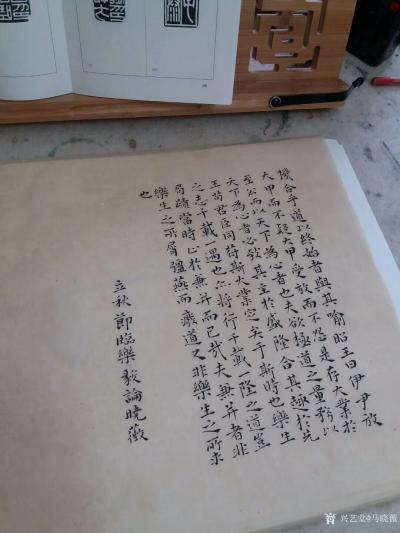 機合乎道以終始者與其喻昭王曰伊尹放
大甲而不疑大甲受放而不怨是存大業於
至公而以天下為心者也夫欲極道之量務以
天下為心者必致其主於盛隆合其趣於先
王苟君臣同符斯大業定矣于斯時也樂生
之志千載一遇也亦將行千載一隆之道豈
局蹟當時止於兼并而已哉夫兼并者非
樂生之所屑彊燕而廢道又非樂生之所求
也
立秋節臨樂毅論曉薇
兴艺堂@马晓薇